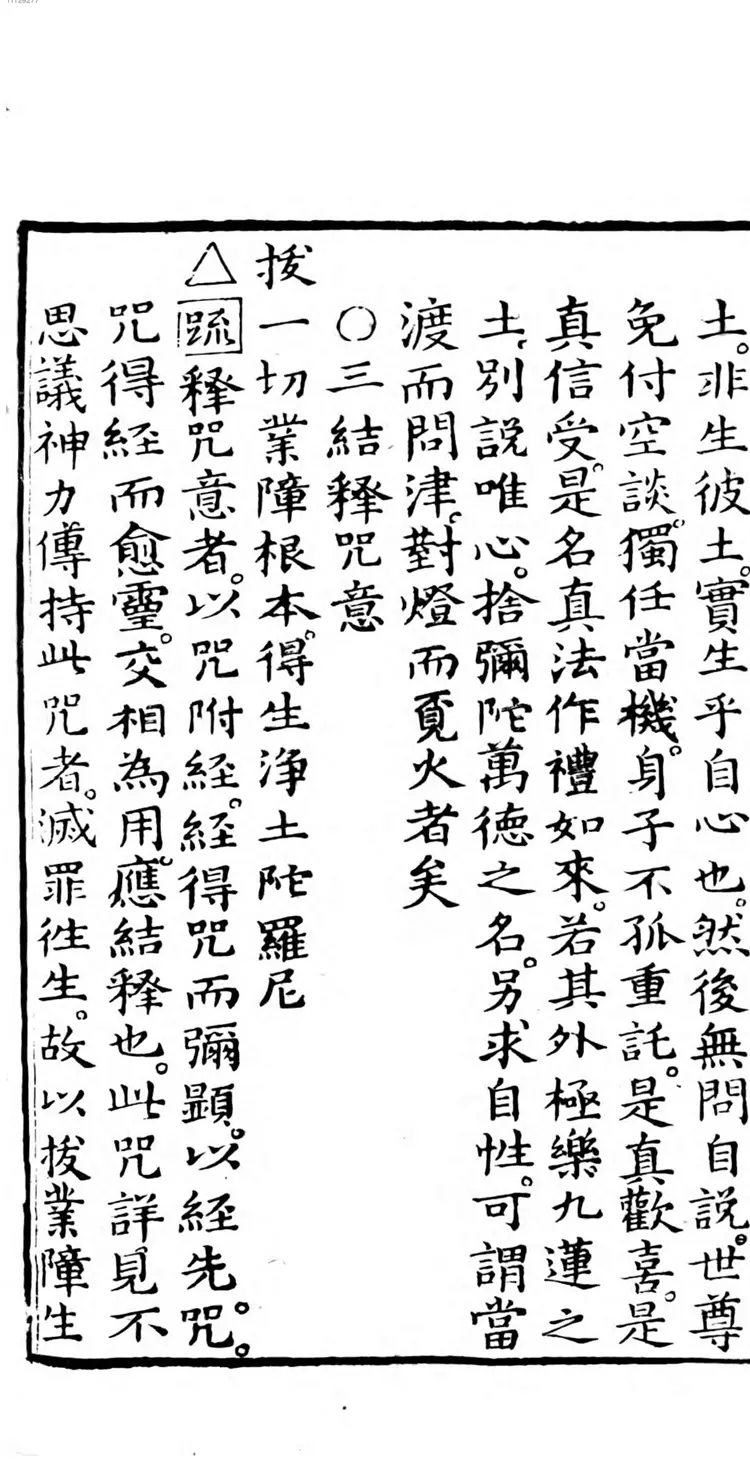 土。非生彼土。實生乎自心也。然後無問自說。世尊
免付空談。獨任當機。身子不孤重託。是真歡喜。是
真信受。是名真法作禮如來。若其外極樂九蓮之
土、別說唯心。捨彌陀萬德之名。另求自性。可謂當
渡而問津。對燈而覓火者矣
○三結釋咒意
拔一切業障根本。得生淨土陀羅尼
△疏釋咒意者。以咒附經。經得咒而彌顯。以經先咒。
咒得經而愈靈。交相為用。應結釋也。此咒詳見不
思議神力傳持此咒者。滅罪往生。故以拔業障生